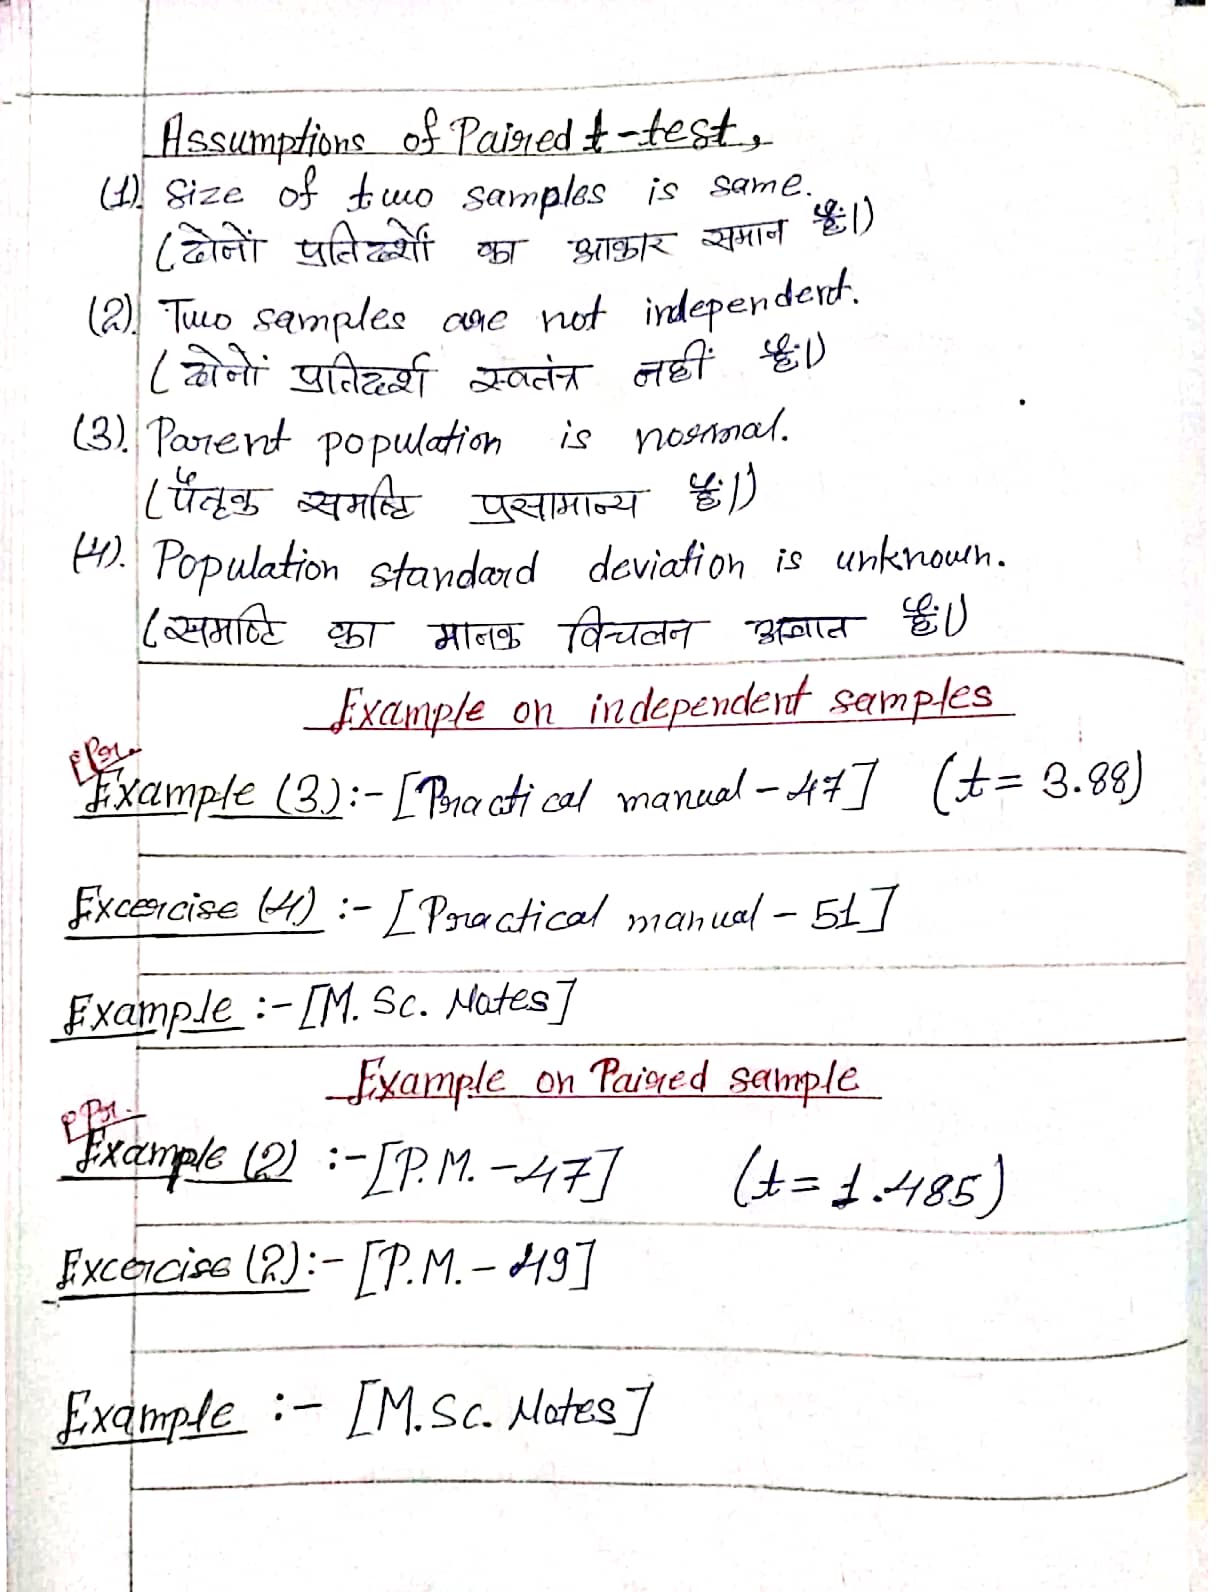 Assumptions of Paired t-test,
(1). Size of two samples is same.
(दोनों प्रतिदर्शों का आकार समान है।)
(2). Two samples are not independent.
(दोनों प्रतिदर्श स्वतंत्र नहीं है।)
(3). Parent population is normal.
(पैतृक समष्टि प्रसामान्य है।)
(4). Population standard deviation is unknown.
(समष्टि का मानक विचलन अज्ञात है।)
Example on independent samples
Example (3):- [Practical manual - 47] (t = 3.88)
Excercise (4) :- [Practical manual - 51]
Example :- [M. Sc. Notes]
Example on Paired sample
Example (2) :- [P.M. - 47] (t = 1.485)
Excercise (2):- [P.M. - 49]
Example :- [M.Sc. Notes]